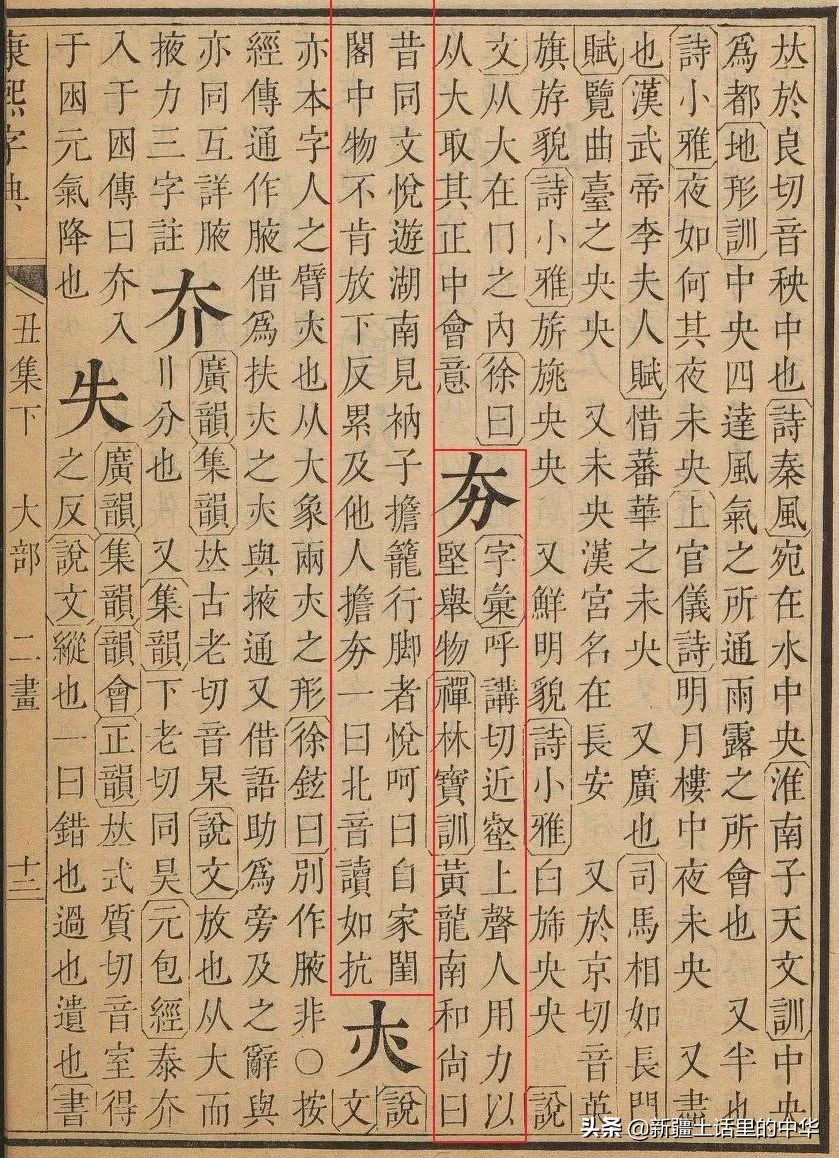 𠀤於良切音秧中也詩秦風宛在水中央淮南子天文訓中央
爲都地形訓中央四達風氣之所通雨露之所會也 又半也
詩小雅夜如何其夜未央上官儀詩明月樓中夜未央 又盡
也漢武帝李夫人賦惜蕃華之未央 又廣也司馬相如長門
賦覽曲臺之央央 又未央漢宮名在長安 又於京切音英
旗斿貌詩小雅旂旐央央 又鮮明貌詩小雅白斾央央 說
文从大在冂之內徐曰
从大取其正中會意
夯
字彙呼講切近壑上聲人用力以
堅舉物禪林寶訓黃龍南和尙曰
昔同文悅遊湖南見衲子擔籠行脚者悅呵曰自家閨
閣中物不肯放下反累及他人擔夯一曰北音讀如抗
𡗕
說
文
亦本字人之臂𡗕也从大象兩𡗕之形徐鉉曰別作腋非○按
經傳通作腋借爲扶𡗕之𡗕與掖通又借語助爲旁及之辭與
亦同互詳腋
掖力三字註
夰
廣韻集韻𠀤古老切音杲說文放也从大而
八分也 又集韻下老切同昊元包經泰夰
入于困傳曰夰入
于困元氣降也
失
廣韻集韻韻會正韻𠀤式質切音室得
之反說文縱也一曰錯也過也遺也書
康熙字典 丑集下 大部 二畫 十三
头条 @新疆土话里的中华